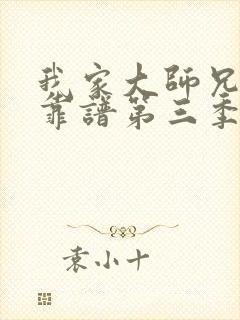 我家大師兄
靠譜第三季
袁小十